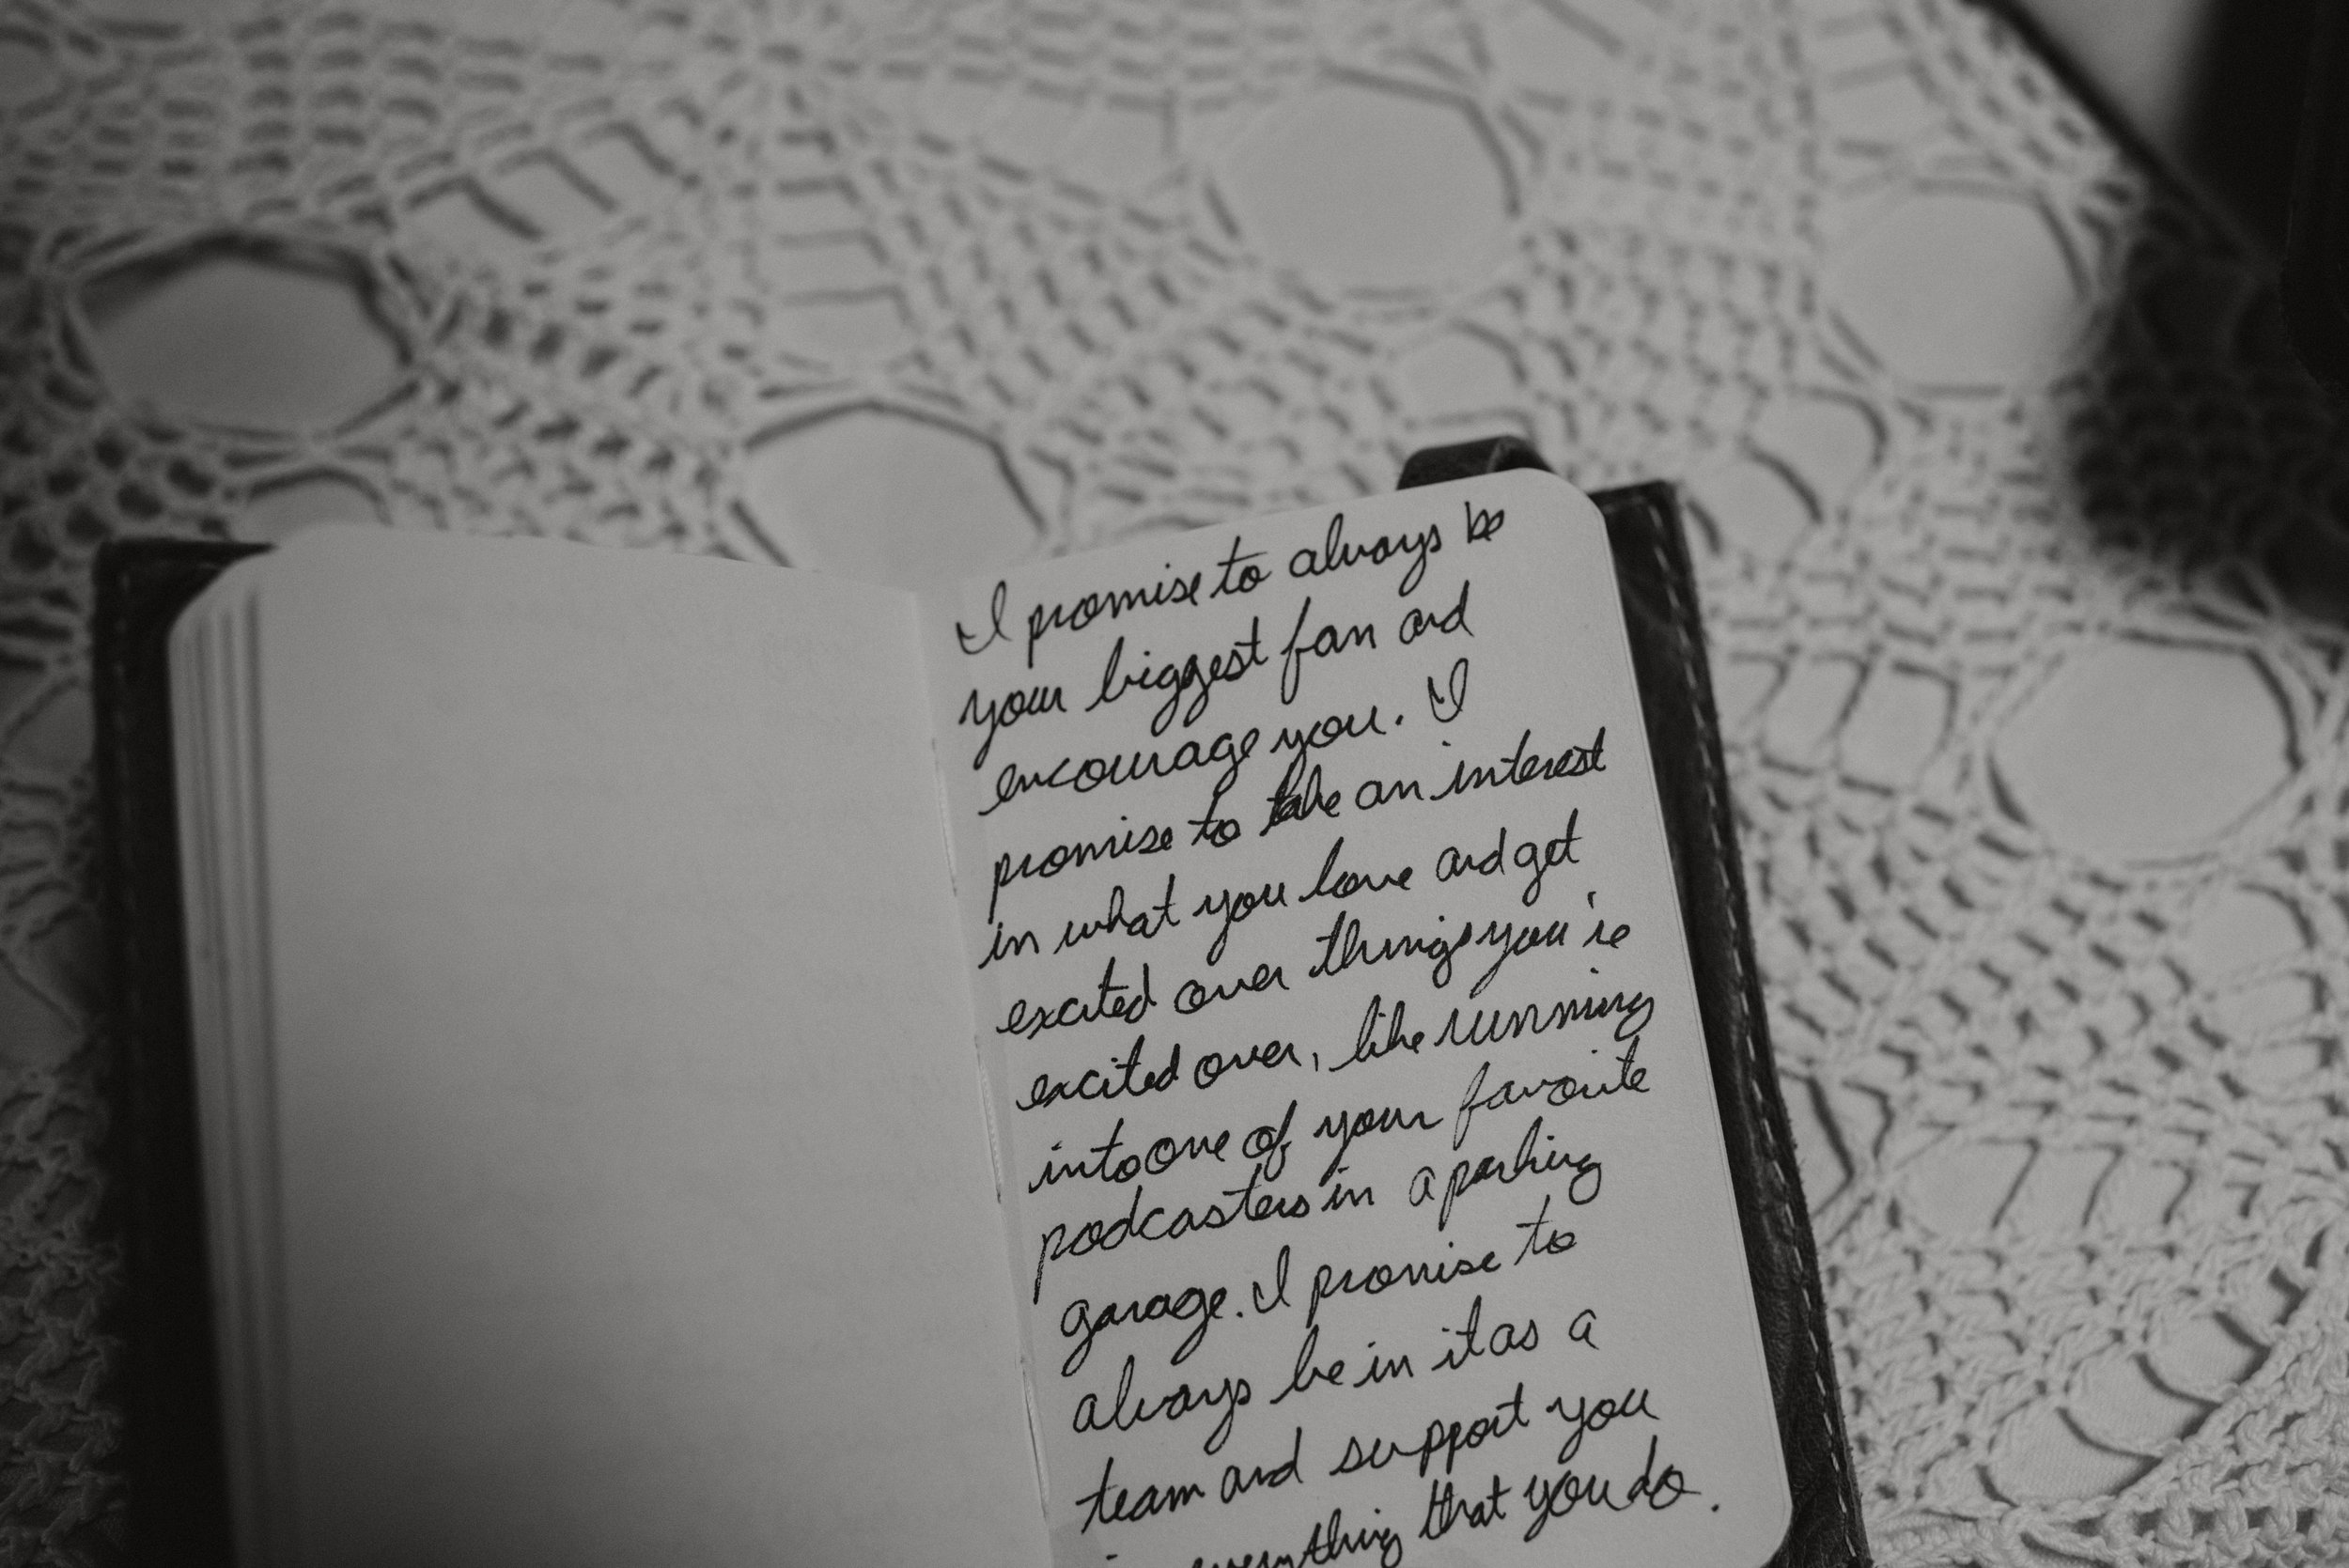 I promise to always be
your biggest fan and
encourage you. I
promise to take an interest
in what you love and get
excited over things you're
excited over, like running
into one of your favorite
podcasters in a parking
garage. I promise to
always be in it as a
team and support you
in everything that you do.